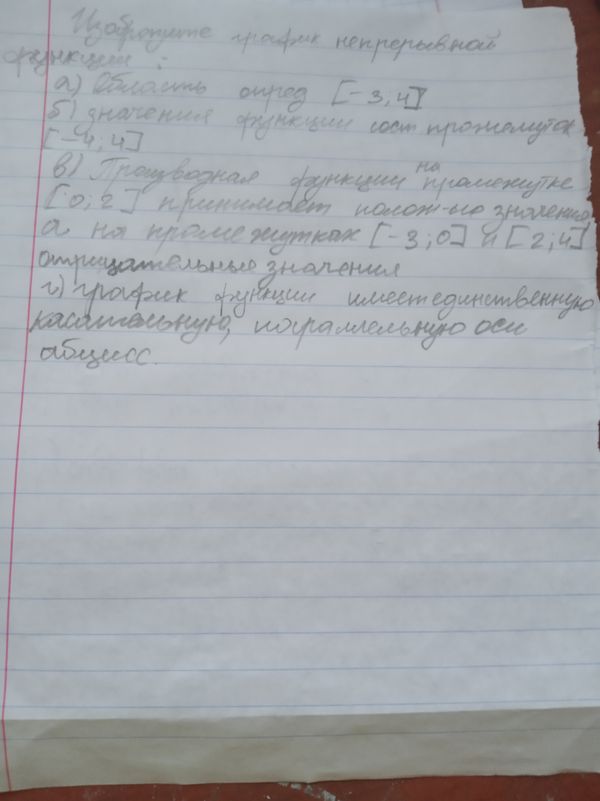 Изобразите график непрерывной
функции:
а) Область опред [-3,4]
б) значения функции сост промежуток
[-4;4]
в) Производная функции на промежутке
[0;2] принимает полож-ые значения,
а на промежутках [-3;0] и [2;4]
отрицательные значения
г) график функции имеет единственную
касательную, параллельную оси
абцисс.